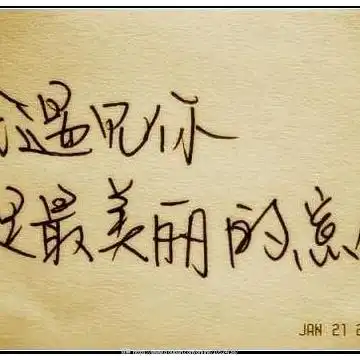 遇见你
是最美丽的意
JAN 21 2